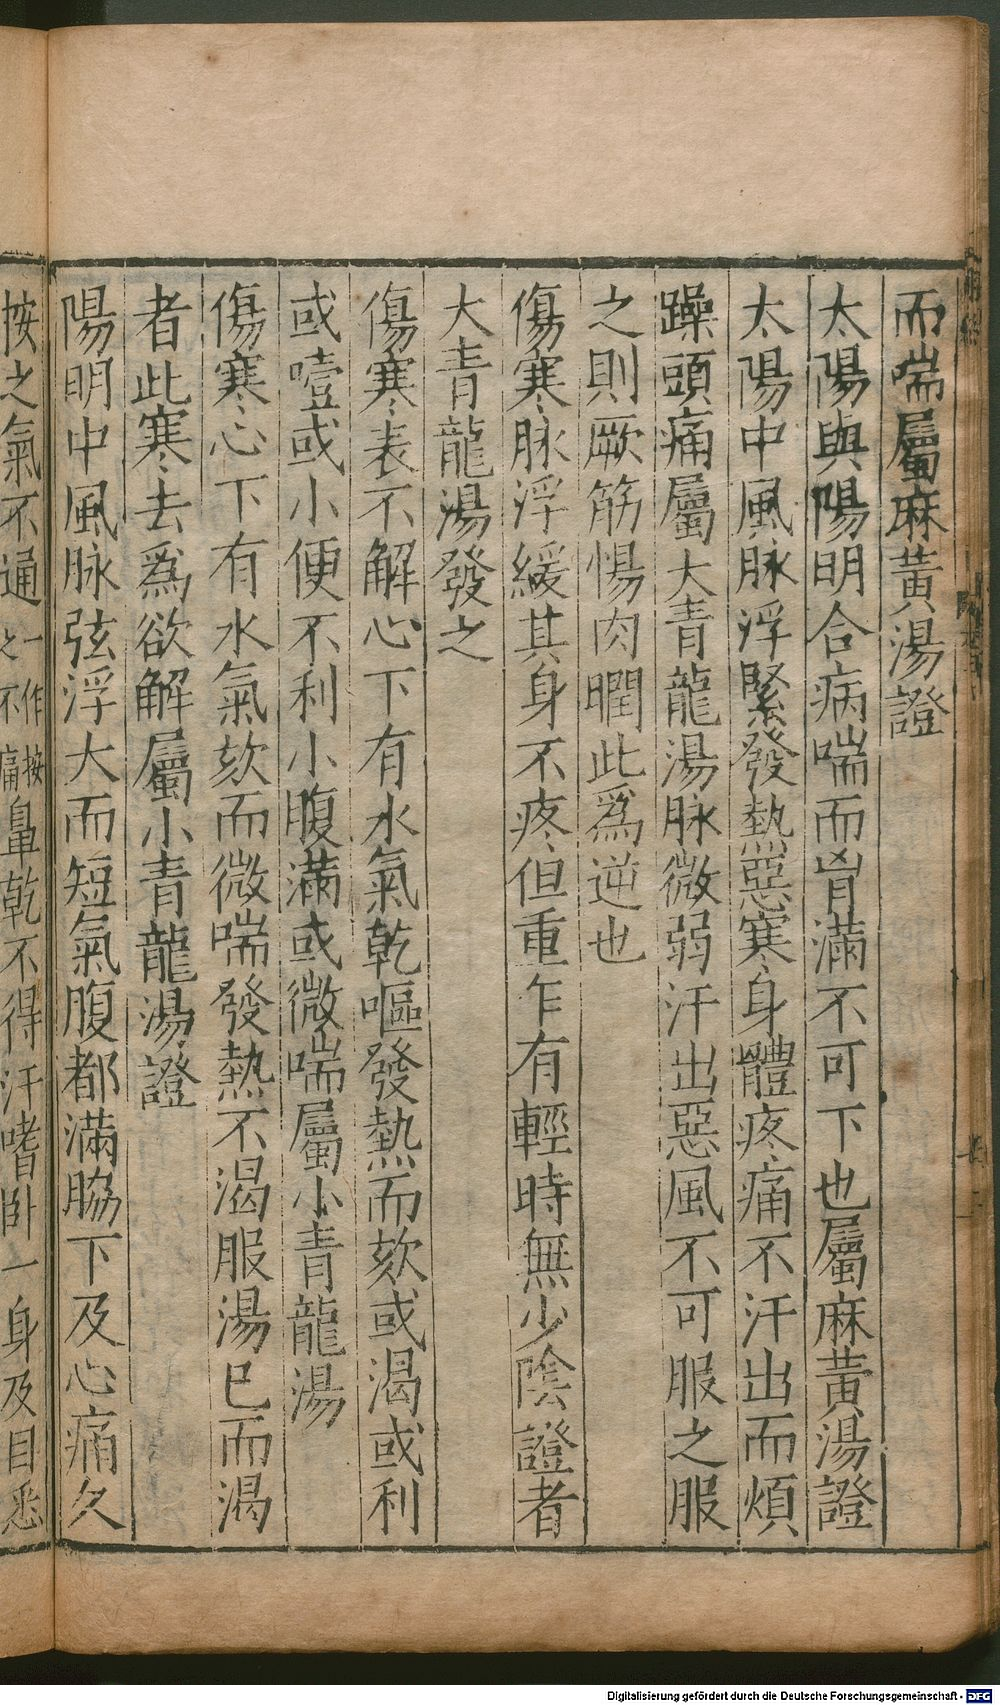 而喘屬麻黃湯證
太陽與陽明合病喘而胷滿不可下也屬麻黃湯證
太陽中風脉浮緊發熱惡寒身體疼痛不汗出而煩
躁頭痛屬大青龍湯脉微弱汗出惡風不可服之服
之則厥筋惕肉瞤此爲逆也
傷寒脉浮緩其身不疼但重乍有輕時無少陰證者
大青龍湯發之
傷寒表不解心下有水氣乾嘔發熱而欬或渴或利
或噎或小便不利小腹滿或微喘屬小青龍湯
傷寒心下有水氣欬而微喘發熱不渴服湯已而渴
者此寒去爲欲解屬小青龍湯證
陽明中風脉弦浮大而短氣腹都滿脇下及心痛久
按之氣不通一作按之不痛鼻乾不得汗嗜卧一身及目悉
Digitalisierung gefördert durch die Deutsche Forschungsgemeinschaft - DFG